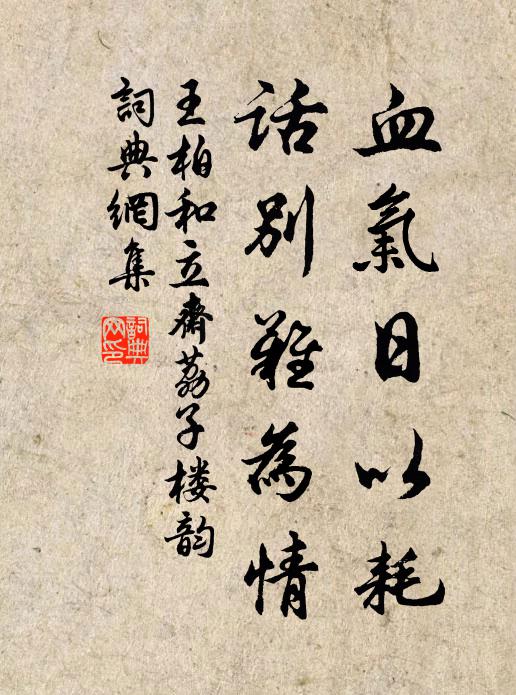 血氣日以耗
話別難為情
王柏和立齋荔子楼韵
詞典網集
詞典
网印